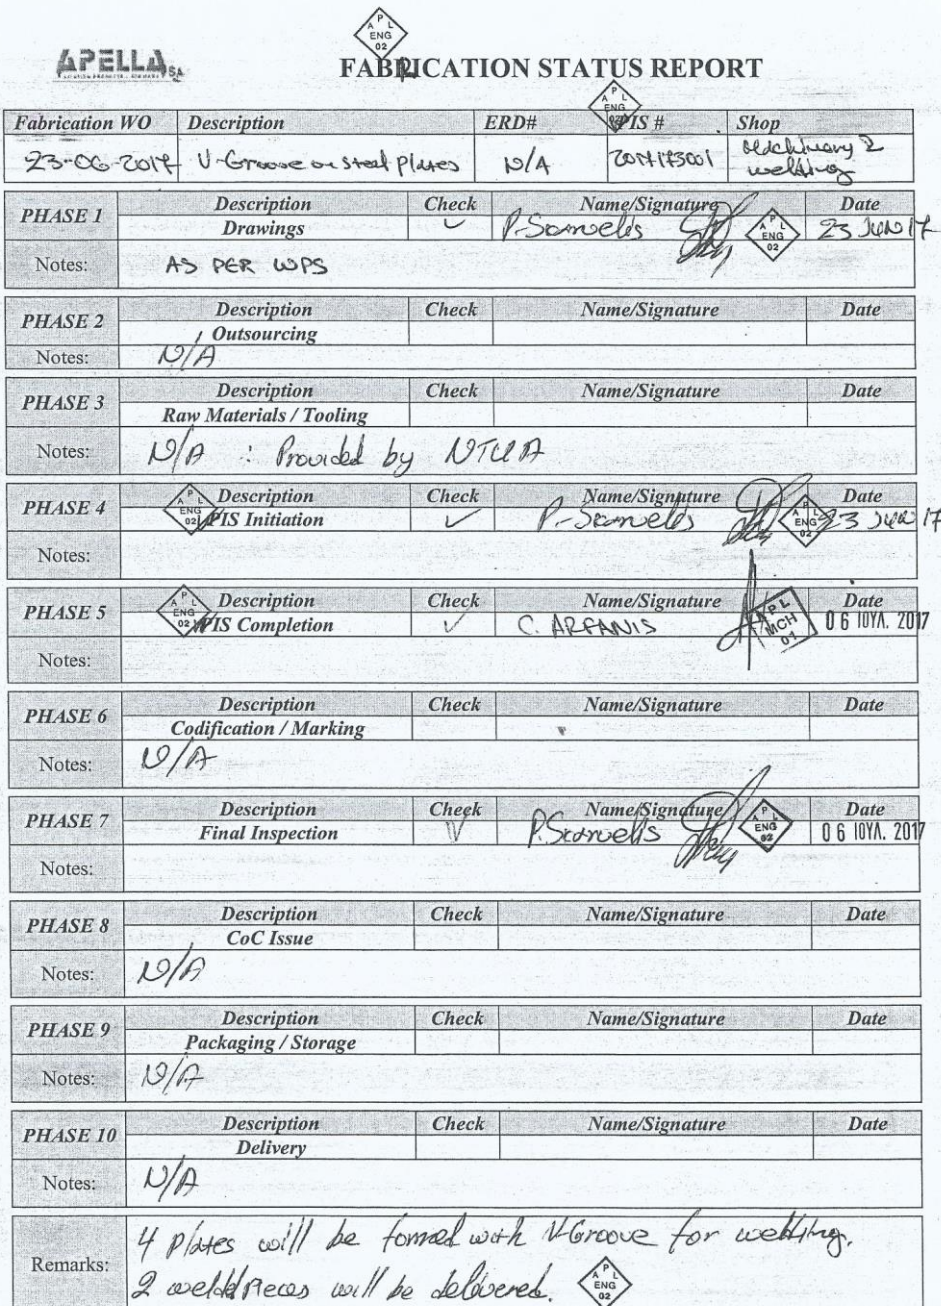 APELLA SA
A P L ENG 02
FABRICATION STATUS REPORT
A P L ENG 02
Fabrication WO Description ERD# PIS # Shop
23-06-2017 V-Groove on steel plates N/A 2017173001 Machinery & welding
PHASE 1 Description Check Name/Signature Date
Drawings ✓ P. Samelis A P L ENG 02 23 JUN 17
Notes: AS PER WPS
PHASE 2 Description Check Name/Signature Date
Outsourcing
Notes: N/A
PHASE 3 Description Check Name/Signature Date
Raw Materials / Tooling
Notes: N/A : Provided by NTUA
PHASE 4 Description Check Name/Signature Date
A P L ENG 02 PIS Initiation ✓ P. Samelis A P L ENG 02 23 JUN 17
Notes:
PHASE 5 Description Check Name/Signature Date
A P L ENG 02 PIS Completion ✓ C. ARFANIS A P L MCH 01 06 ΙΟΥΛ. 2017
Notes:
PHASE 6 Description Check Name/Signature Date
Codification / Marking
Notes: N/A
PHASE 7 Description Check Name/Signature Date
Final Inspection ✓ P. Samelis A P L ENG 02 06 ΙΟΥΛ. 2017
Notes:
PHASE 8 Description Check Name/Signature Date
CoC Issue
Notes: N/A
PHASE 9 Description Check Name/Signature Date
Packaging / Storage
Notes: N/A
PHASE 10 Description Check Name/Signature Date
Delivery
Notes: N/A
Remarks: 4 plates will be formed with V-Groove for welding.
2 welded pieces will be delivered. A P L ENG 02